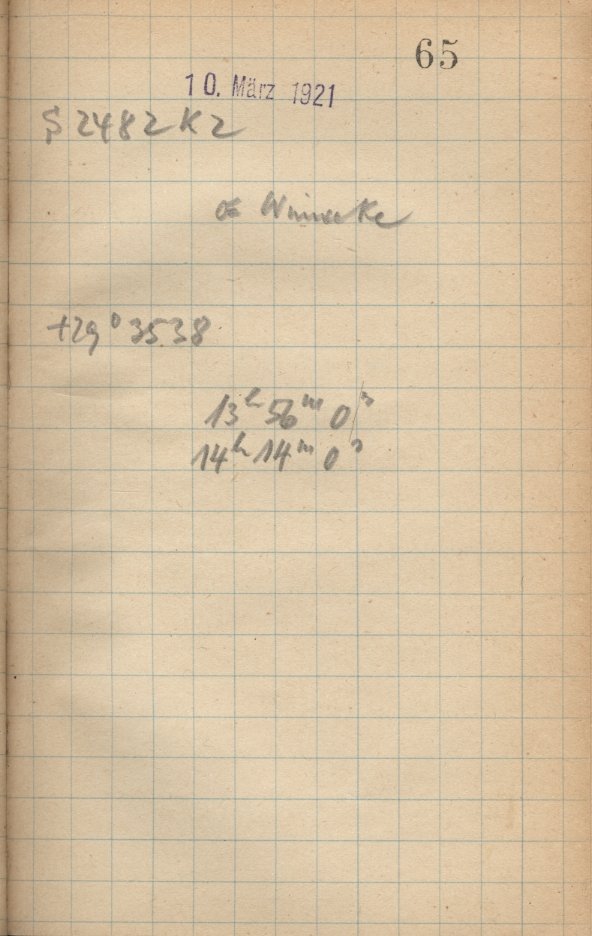 65
10. März 1921
S 2482 K2
Winnecke
+29° 3538
13ʰ 56ᵐ 0ˢ
14ʰ 14ᵐ 0ˢ